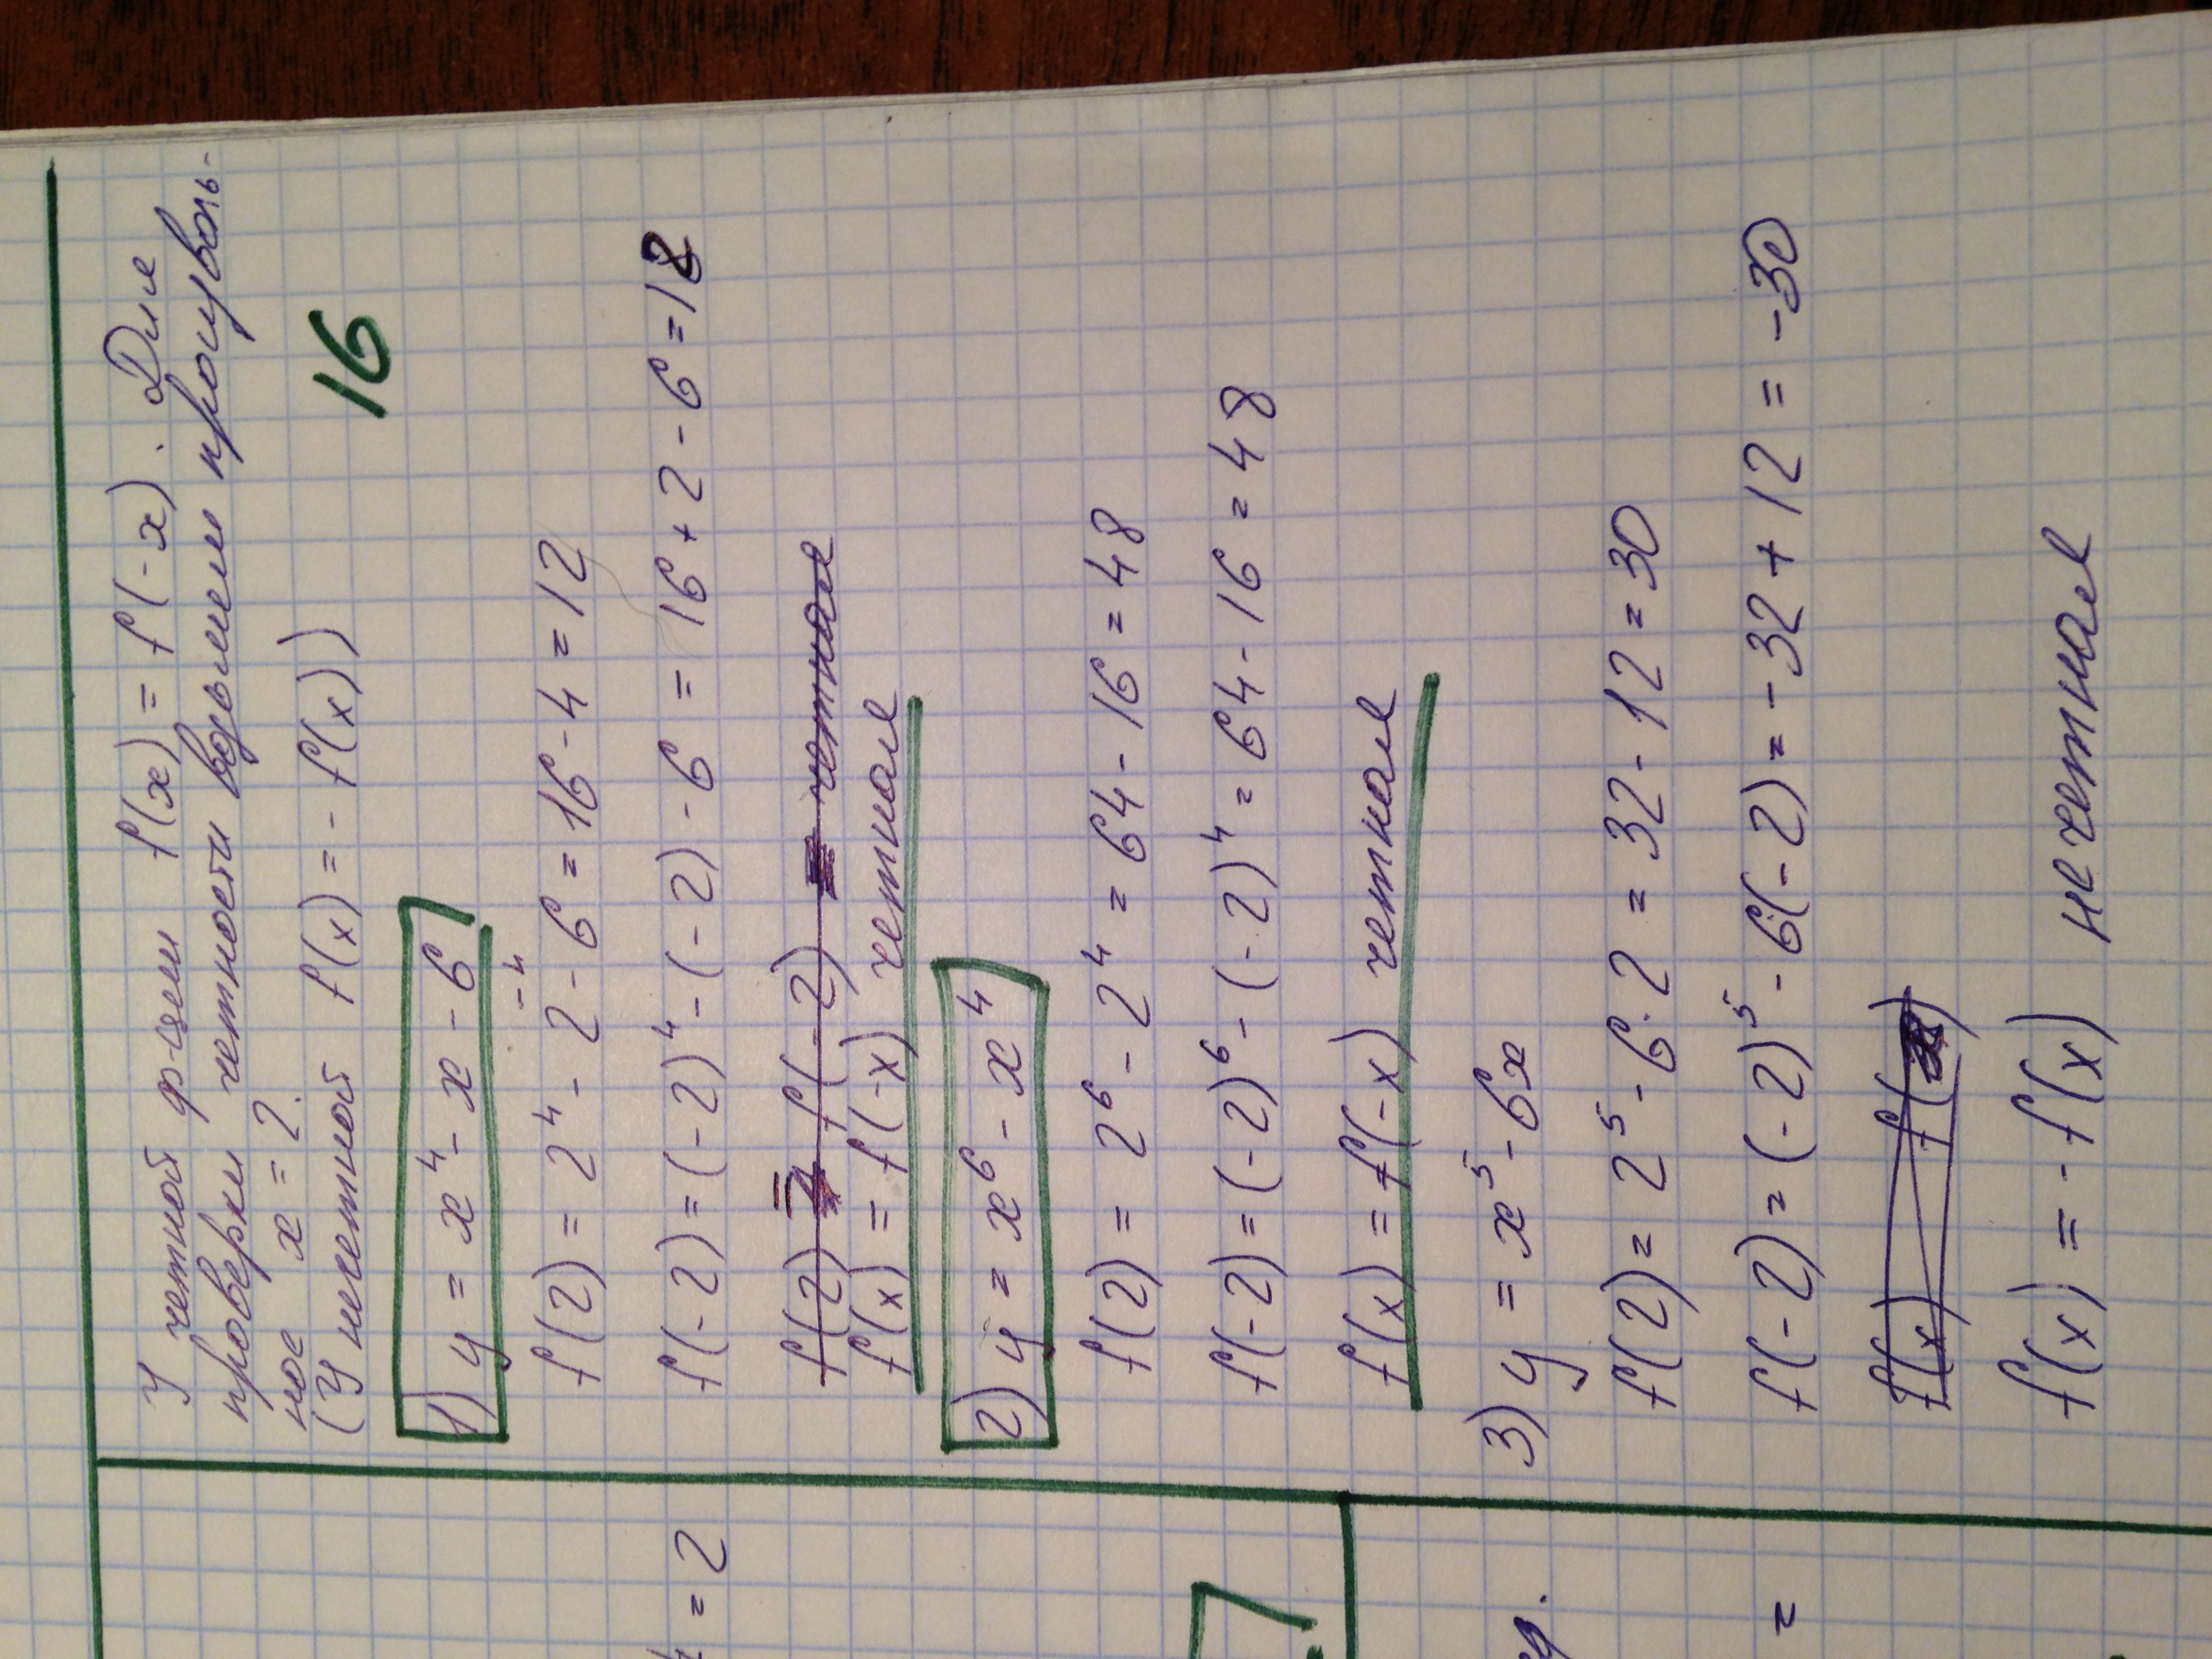 У четной ф-ции f(x) = f(-x). Для
проверки четности возьмем произволь-
ное x = 2.
(У нечетной f(x) = - f(x))
16
1) y = x⁴ - x - 6
-4
f(2) = 2⁴ - 2 - 6 = 16 - 4 = 12
f(-2) = (-2)⁴ - (-2) - 6 = 16 + 2 - 6 = 12
f(2) = f(-2) четная
f(x) = f(-x) четная
2) y = x⁶ - x⁴
f(2) = 2⁶ - 2⁴ = 64 - 16 = 48
f(-2) = (-2)⁶ - (-2)⁴ = 64 - 16 = 48
f(x) = f(-x) четная
3) y = x⁵ - 6x
f(2) = 2⁵ - 6·2 = 32 - 12 = 30
f(-2) = (-2)⁵ - 6(-2) = -32 + 12 = -30
f(x) f(
f(x) = - f(x) нечетная
= 2
7
=